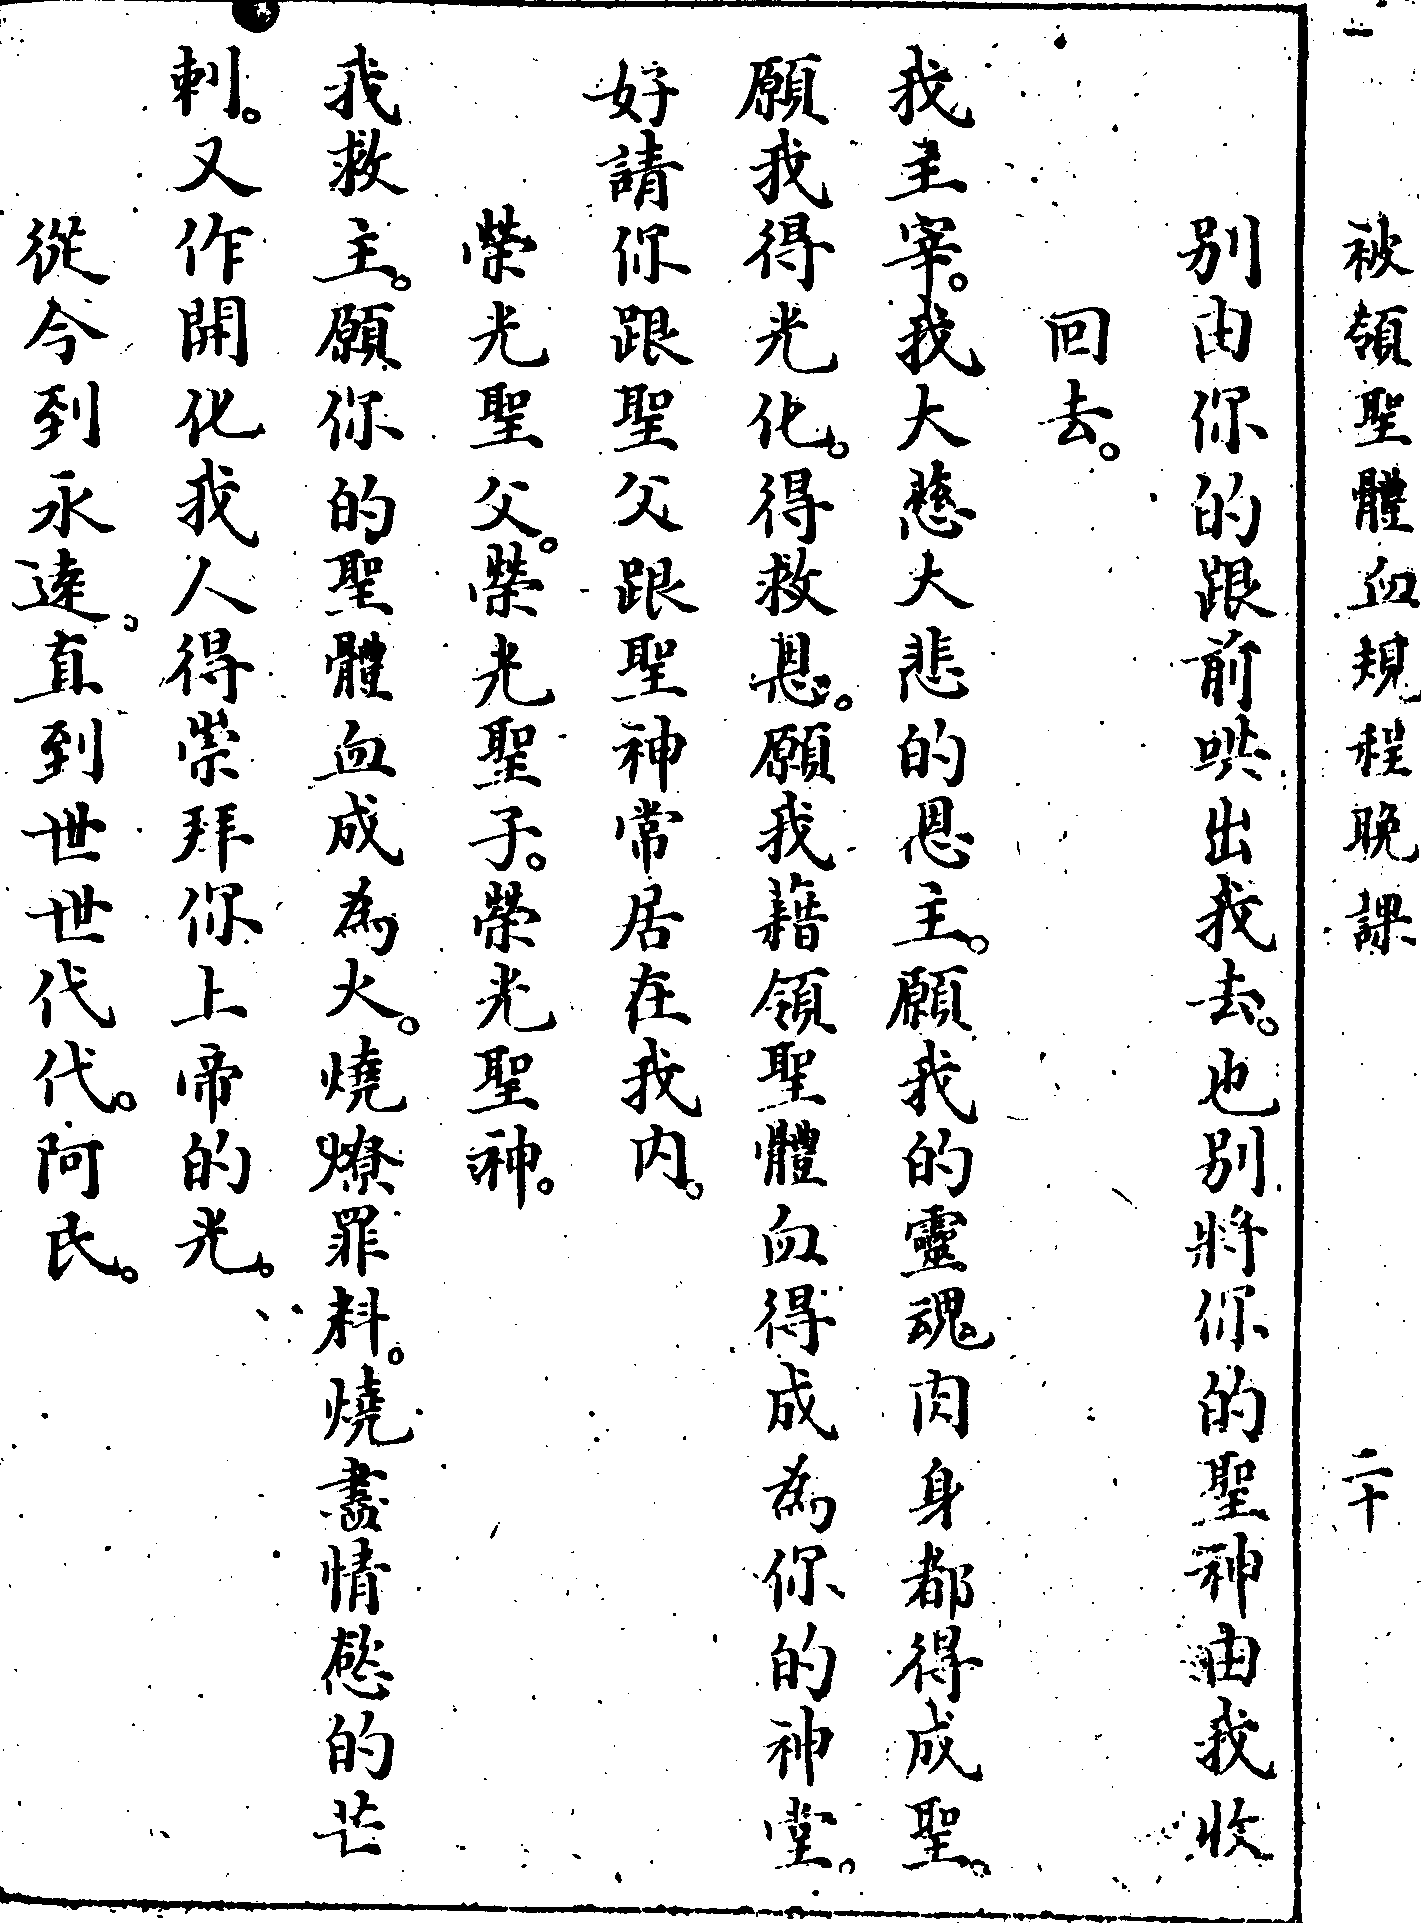 被領聖體血規程晚課 二十
别由你的跟前哄出我去。也别將你的聖神由我收
回去。
我主宰。我大慈大悲的恩主。願我的靈魂肉身都得成聖。
願我得光化。得救恩。願我藉領聖體血得成為你的神堂。
好請你跟聖父跟聖神常居在我内。
榮光聖父。榮光聖子。榮光聖神。
我救主。願你的聖體血成為火。燒燎罪料。燒盡情慾的芒
刺。又作開化我人得崇拜你上帝的光。
從今到永遠。直到世世代代。阿民。